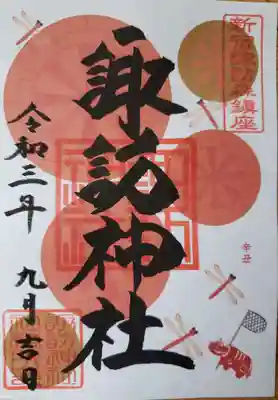 鎮座
辛丑
諏訪神社
令和三年 九月吉日